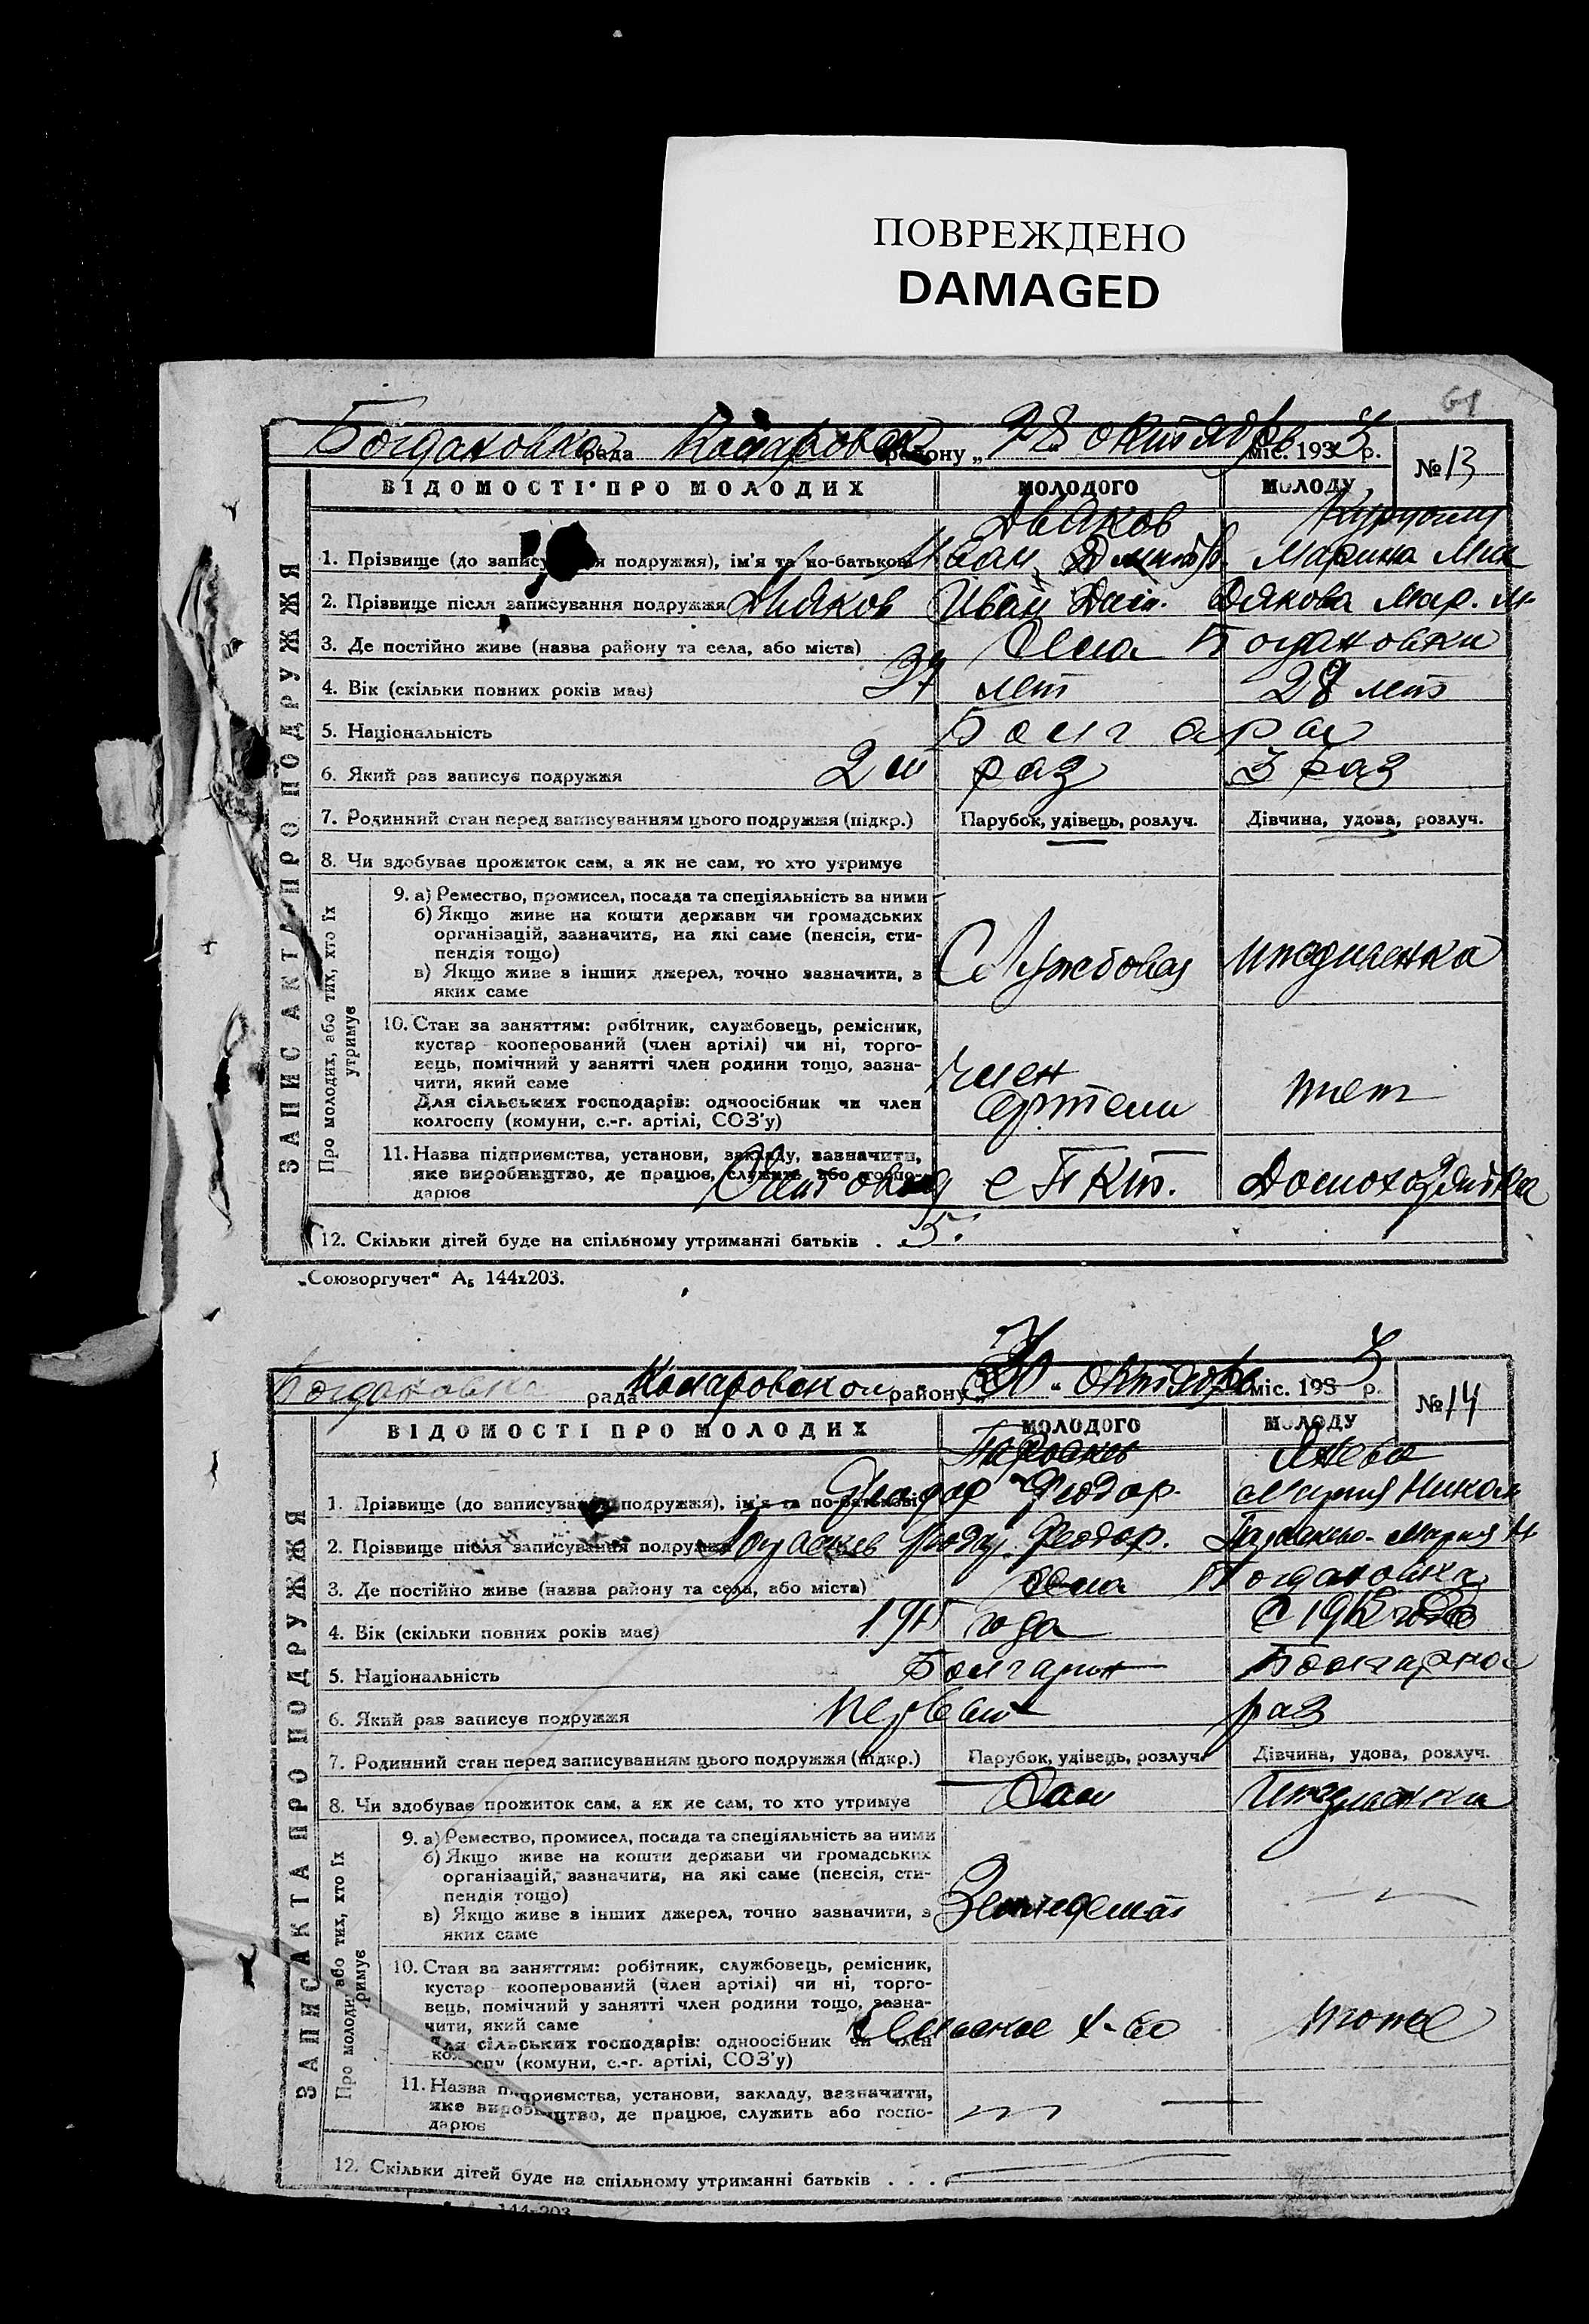 ПОВРЕЖДЕНО
DAMAGED
61
Богдановка рада району „ 28 октября міс. 193 р.
№ 13
ВІДОМОСТІ ПРО МОЛОДИХ МОЛОДОГО МОЛОДУ
Дьяков
1. Прізвище (до записування подружжя), ім'я та по-батькові Иван Дмитр. Марина Мих
2. Прізвище після записування подружжя Дьяков Иван Дми. Дякова Мар. М.
3. Де постійно живе (назва району та села, або міста) Села Богдановки
4. Вік (скільки повних років має) лет 28 лет
5. Національність Болгары
6. Який раз записує подружжя 2й раз 3 раз
7. Родинний стан перед записуванням цього подружжя (підкр.) Парубок, удівець, розлуч. Дівчина, удова, розлуч.
8. Чи здобуває прожиток сам, а як не сам, то хто утримує
9. а) Ремество, промисел, посада та спеціяльність за ними
б) Якщо живе на кошти держави чи громадських
організацій, зазначити, на які саме (пенсія, сти-
пендія тощо)
в) Якщо живе з інших джерел, точно зазначити, з
яких саме
Службовец иждивенка
10. Стан за заняттям: робітник, службовець, ремісник,
кустар кооперований (член артілі) чи ні, торго-
вець, помічний у занятті член родини тощо, зазна-
чити, який саме
Для сільських господарів: одноосібник чи член
колгоспу (комуни, с.-г. артілі, СОЗ'у)
член
артели
11. Назва підприємства, установи, закладу, зазначити,
яке виробництво, де працює, служить або госпо-
дарює
Домохозяйка
12. Скільки дітей буде на спільному утриманні батьків . . 5.
ЗАПИС АКТА ПРО ПОДРУЖЖЯ
Про молодих, або тих, хто їх
утримує
„Союзоргучет“ А₅ 144х203.
Богдановка рада Комаровской району „ 30 “ октября міс. 193 р.
№ 14
ВІДОМОСТІ ПРО МОЛОДИХ МОЛОДОГО МОЛОДУ
Янева
1. Прізвище (до записування подружжя), ім'я та по-батькові Феодор. Мария Никол
2. Прізвище після записування подружжя Феодор. Мария Н
3. Де постійно живе (назва району та села, або міста) села Богдановка
4. Вік (скільки повних років має) года
5. Національність Болгарин Болгарка
6. Який раз записує подружжя первый раз
7. Родинний стан перед записуванням цього подружжя (підкр.) Парубок, удівець, розлуч. Дівчина, удова, розлуч.
8. Чи здобуває прожиток сам, а як не сам, то хто утримує Сам Иждивенка
9. а) Ремество, промисел, посада та спеціяльність за ними
б) Якщо живе на кошти держави чи громадських
організацій, зазначити, на які саме (пенсія, сти-
пендія тощо)
в) Якщо живе з інших джерел, точно зазначити, з
яких саме
10. Стан за заняттям: робітник, службовець, ремісник,
кустар кооперований (член артілі) чи ні, торго-
вець, помічний у занятті член родини тощо, зазна-
чити, який саме
Для сільських господарів: одноосібник чи член
колгоспу (комуни, с.-г. артілі, СОЗ'у)
Сельское х-во тоже
11. Назва підприємства, установи, закладу, зазначити,
яке виробництво, де працює, служить або госпо-
дарює
12. Скільки дітей буде на спільному утриманні батьків . . .
ЗАПИС АКТА ПРО ПОДРУЖЖЯ
Про молодих, або тих, хто їх
утримує
144х203